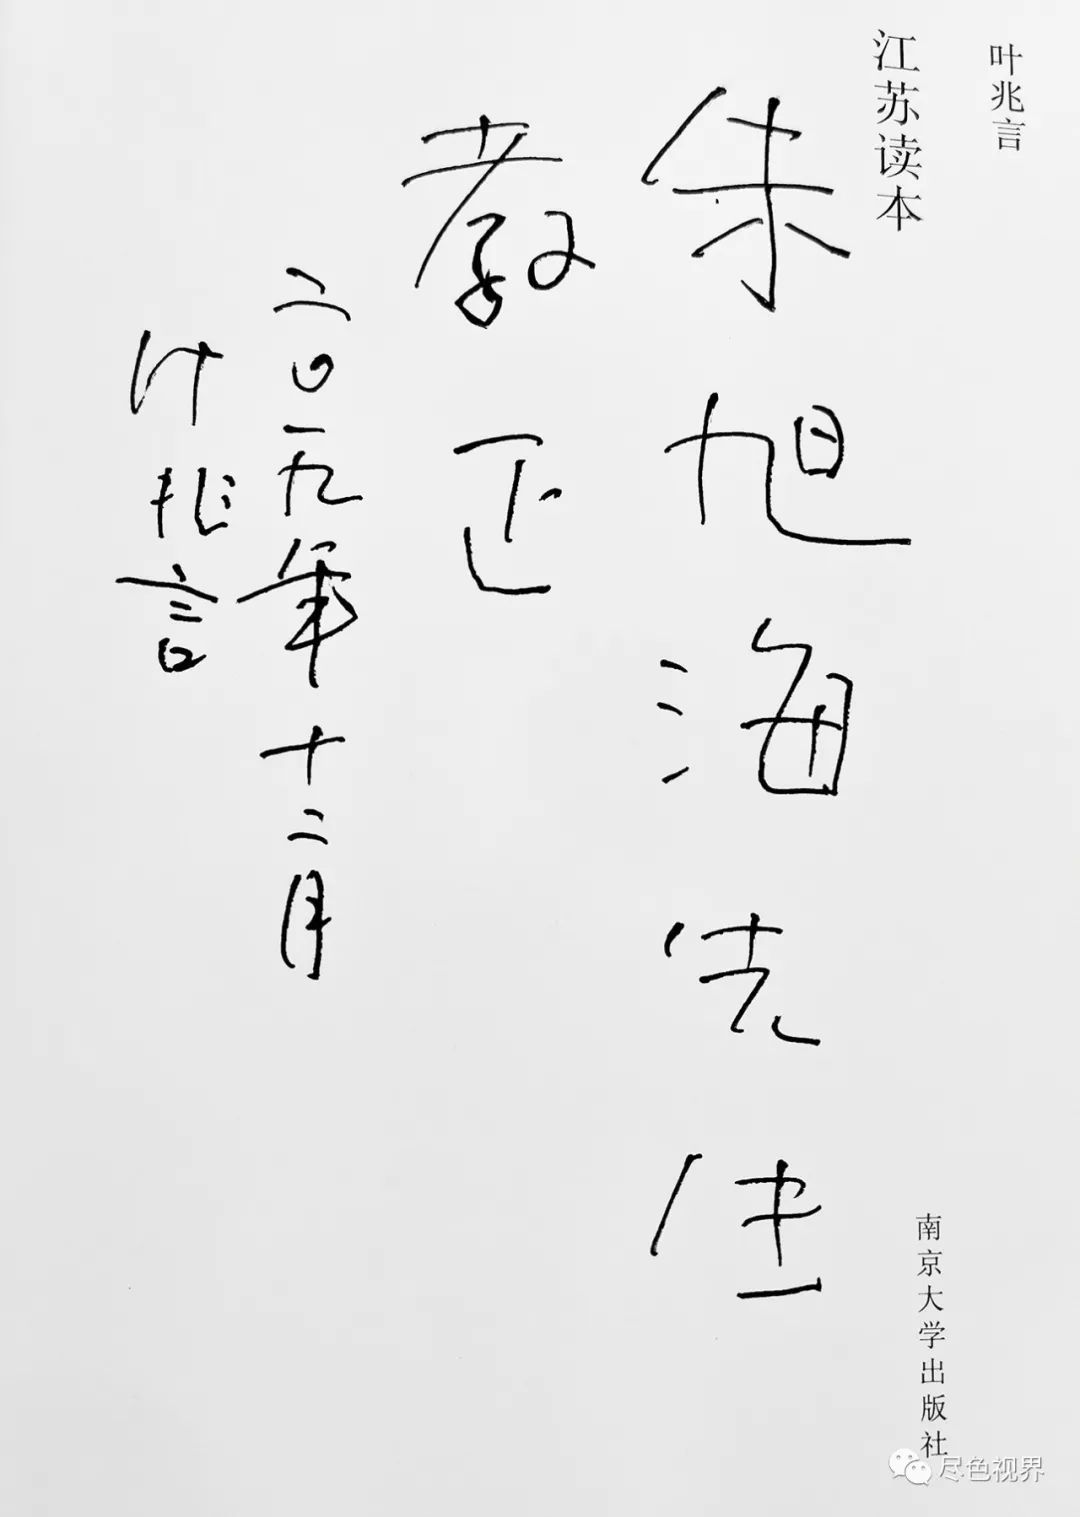 叶兆言
江苏读本
朱旭海先生
教正
二〇一九年十二月
叶兆言
南京大学出版社
尽色视界